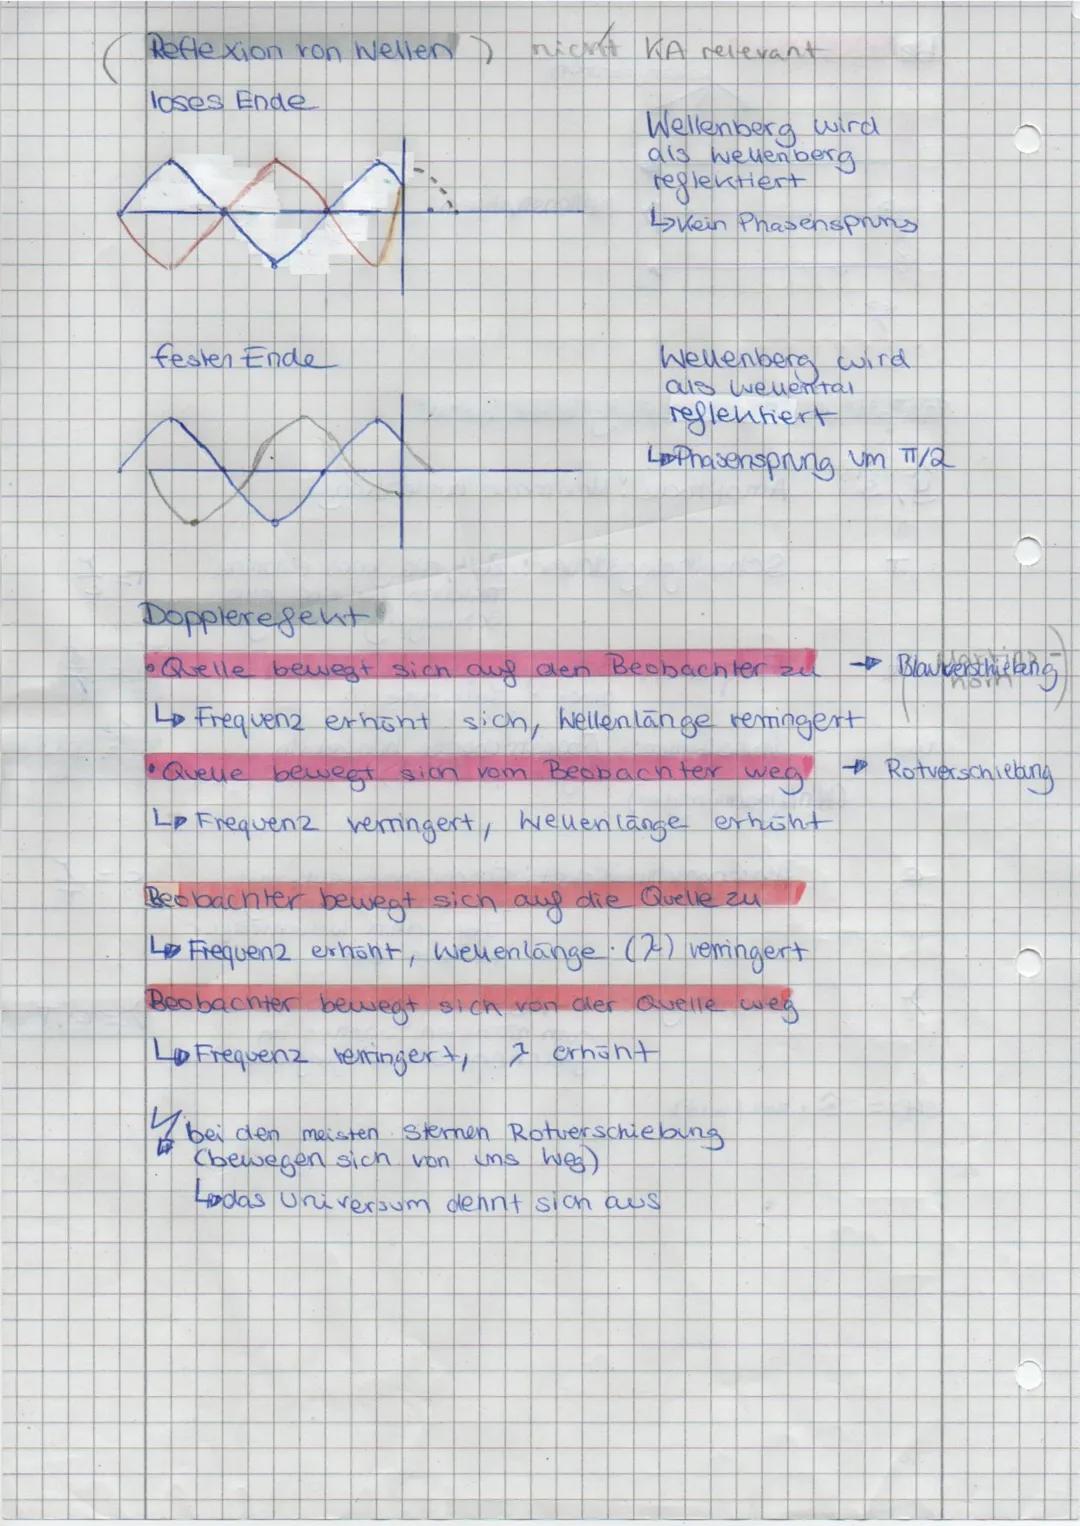 (Reflexion von Wellen) nicht KA relevant
loses Ende
Wellenberg wird
als wellenberg
reflektiert
↳Kein Phasensprung
festen Ende
Wellenberg wird
als wellental
reflektiert
↳Phasensprung um π/2
Dopplerefekt
• Quelle bewegt sich auf den Beobachter zu → Blauverschiebung
↳ Frequenz erhöht sich, Wellenlänge verringert
• Quelle bewegt sich vom Beobachter weg → Rotverschiebung
↳ Frequenz verringert, Wellenlänge erhöht
Beobachter bewegt sich auf die Quelle zu
↳ Frequenz erhöht, Wellenlänge (λ) verringert
Beobachter bewegt sich von der Quelle weg
↳ Frequenz verringert, λ erhöht
↯ bei den meisten Sternen Rotverschiebung
(bewegen sich von uns weg)
↳das Universum dehnt sich aus